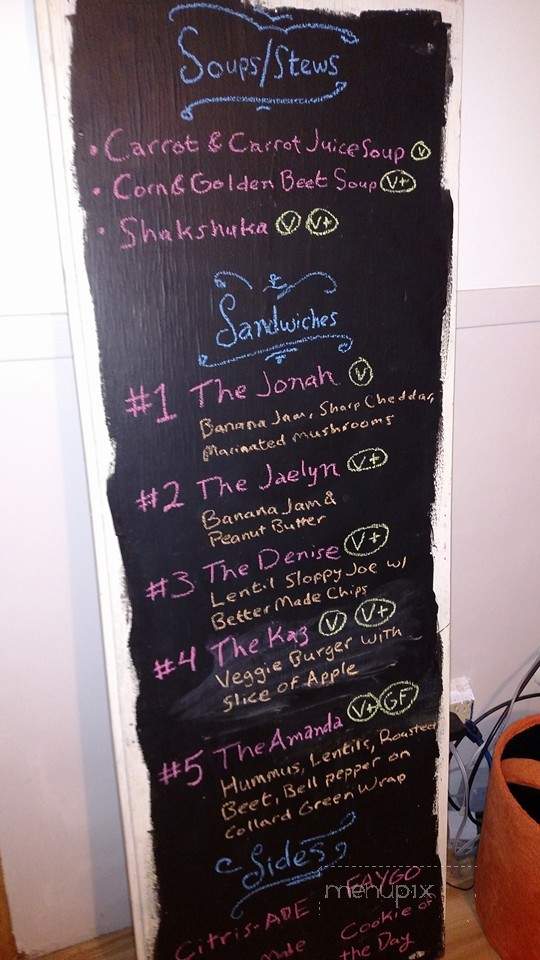 Soups/Stews
• Carrot & Carrot Juice Soup V
• Corn & Golden Beet Soup V+
• Shakshuka V V+
Sandwiches
#1 The Jonah V
Banana Jam, Sharp Cheddar,
Marinated mushrooms
#2 The Jaelyn V+
Banana Jam &
Peanut Butter
#3 The Denise V+
Lentil Sloppy Joe w/
Better Made Chips
#4 The Kas V V+
Veggie Burger with
slice of Apple
#5 The Amanda V+ GF
Hummus, Lentils, Roasted
Beet, Bell pepper on
Collard Green Wrap
Sides
Citris-ADE FAYGO
menupix
Made Cookie of
the Day